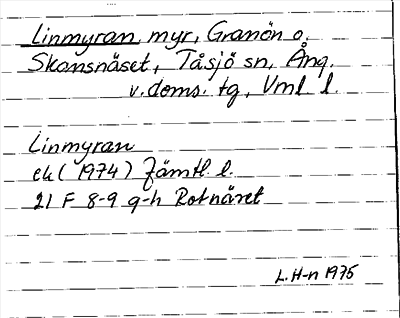 Linmyran myr, Granön o.
Skansnäset, Tåsjö sn, Ång.
v. doms. tg, Vml l.
Linmyran
ek (1974) Jämtl. l.
21 F 8-9 g-h Rotnäret
L. H-n 1975